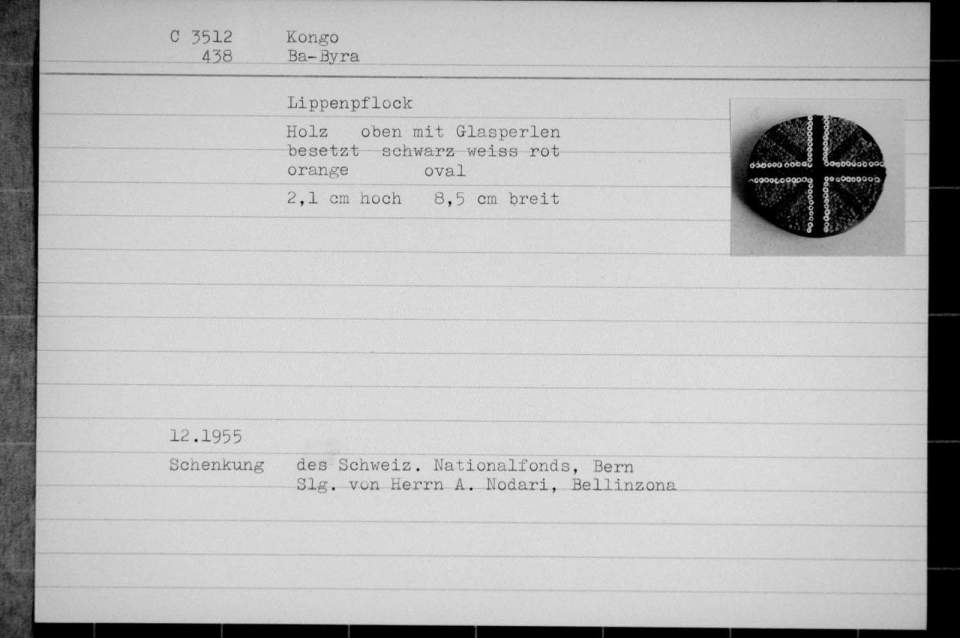 C 3512 Kongo
438 Ba-Byra
Lippenpflock
Holz oben mit Glasperlen
besetzt schwarz weiss rot
orange oval
2,1 cm hoch 8,5 cm breit
12.1955
Schenkung des Schweiz. Nationalfonds, Bern
Slg. von Herrn A. Nodari, Bellinzona